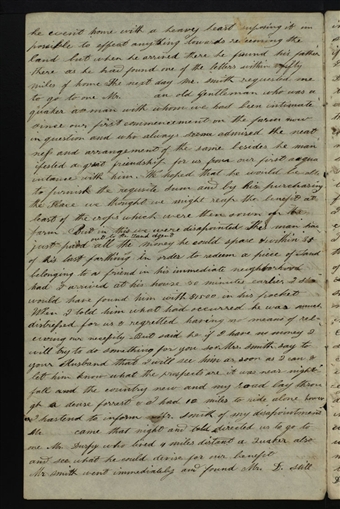 he went home with a heavy heart supposing it im
possible to effect anything towards redeeming the
land but when he arrived there he found his father
there as he had found one of the letters within fifty
miles of home The next day Mr. Smith requested me
to go to one Mr. an old Gentleman who was a
quaker a man with whom we had been intimate
since our first commencement on the farm now
in question and who always admired the neat
ness and arrangement of the same besides he man
ifested a great friendship for us from our first aqua
intance with him. We hoped that he would be able
to furnish the requisite sum and by his purchasing
the place we thought we might reap the benefit at
least of the crops which were then sown on the
farm. But in this we were disapointed The man had
just paid out to the land agent all the money he could spare & within
of his last farthing in order to redeem a piece of land
belonging to a friend in his immediate neighborhood
had I arrived at his house 30 minutes earlier I
would have found him with $1500 in his pocket
When I told him what had occurred he was much
distressed for us & regretted having no means of rel
ieving our necessity. But said he if I have no money I
will try to do something for you so Mrs. Smith say to
your Husband that I will see him as soon as I can &
let him know what the prospects are it was near night
fall and the country new and my road lay throu
gh a dense forrest & I had 10 miles to ride alone however
I hastend to inform Mr. Smith of my disapointment
Mr. came that night and directed us to go to
one Mr. Durfy who lived 4 miles distant a Quaker also
and see what he could devise for our benefit
Mr Smith went immediately and found Mr. D. still